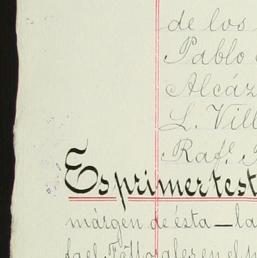 de los
Pablo
Alcáz
L. Vill
Raf.l
Es primer test
márgen de ésta — la